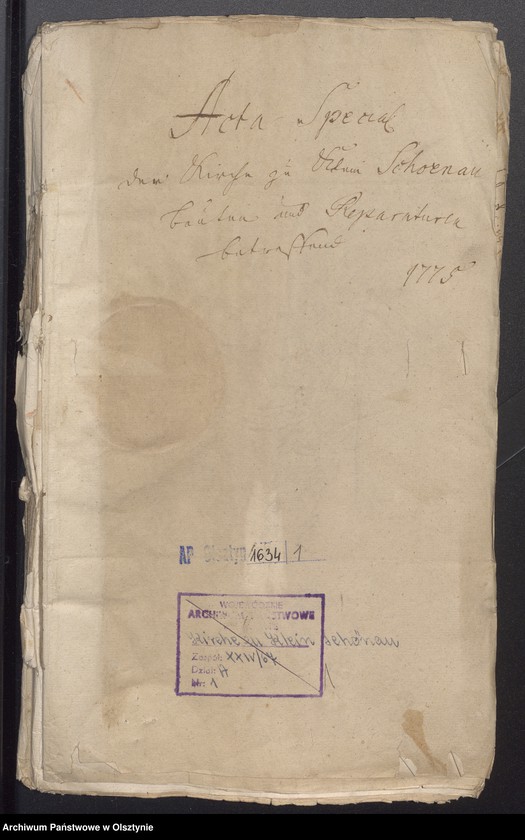 Acta Special
der Kirche zu Klein Schoenau
bauten und Reparaturen
betreffend
1775
AP Olsztyn 1634/1
WOJEWÓDZKIE
ARCHIWUM PAŃSTWOWE
Kirche zu Klein Schönau
Zespół: XXIV/67
Dział: A
Nr: 1
Archiwum Państwowe w Olsztynie